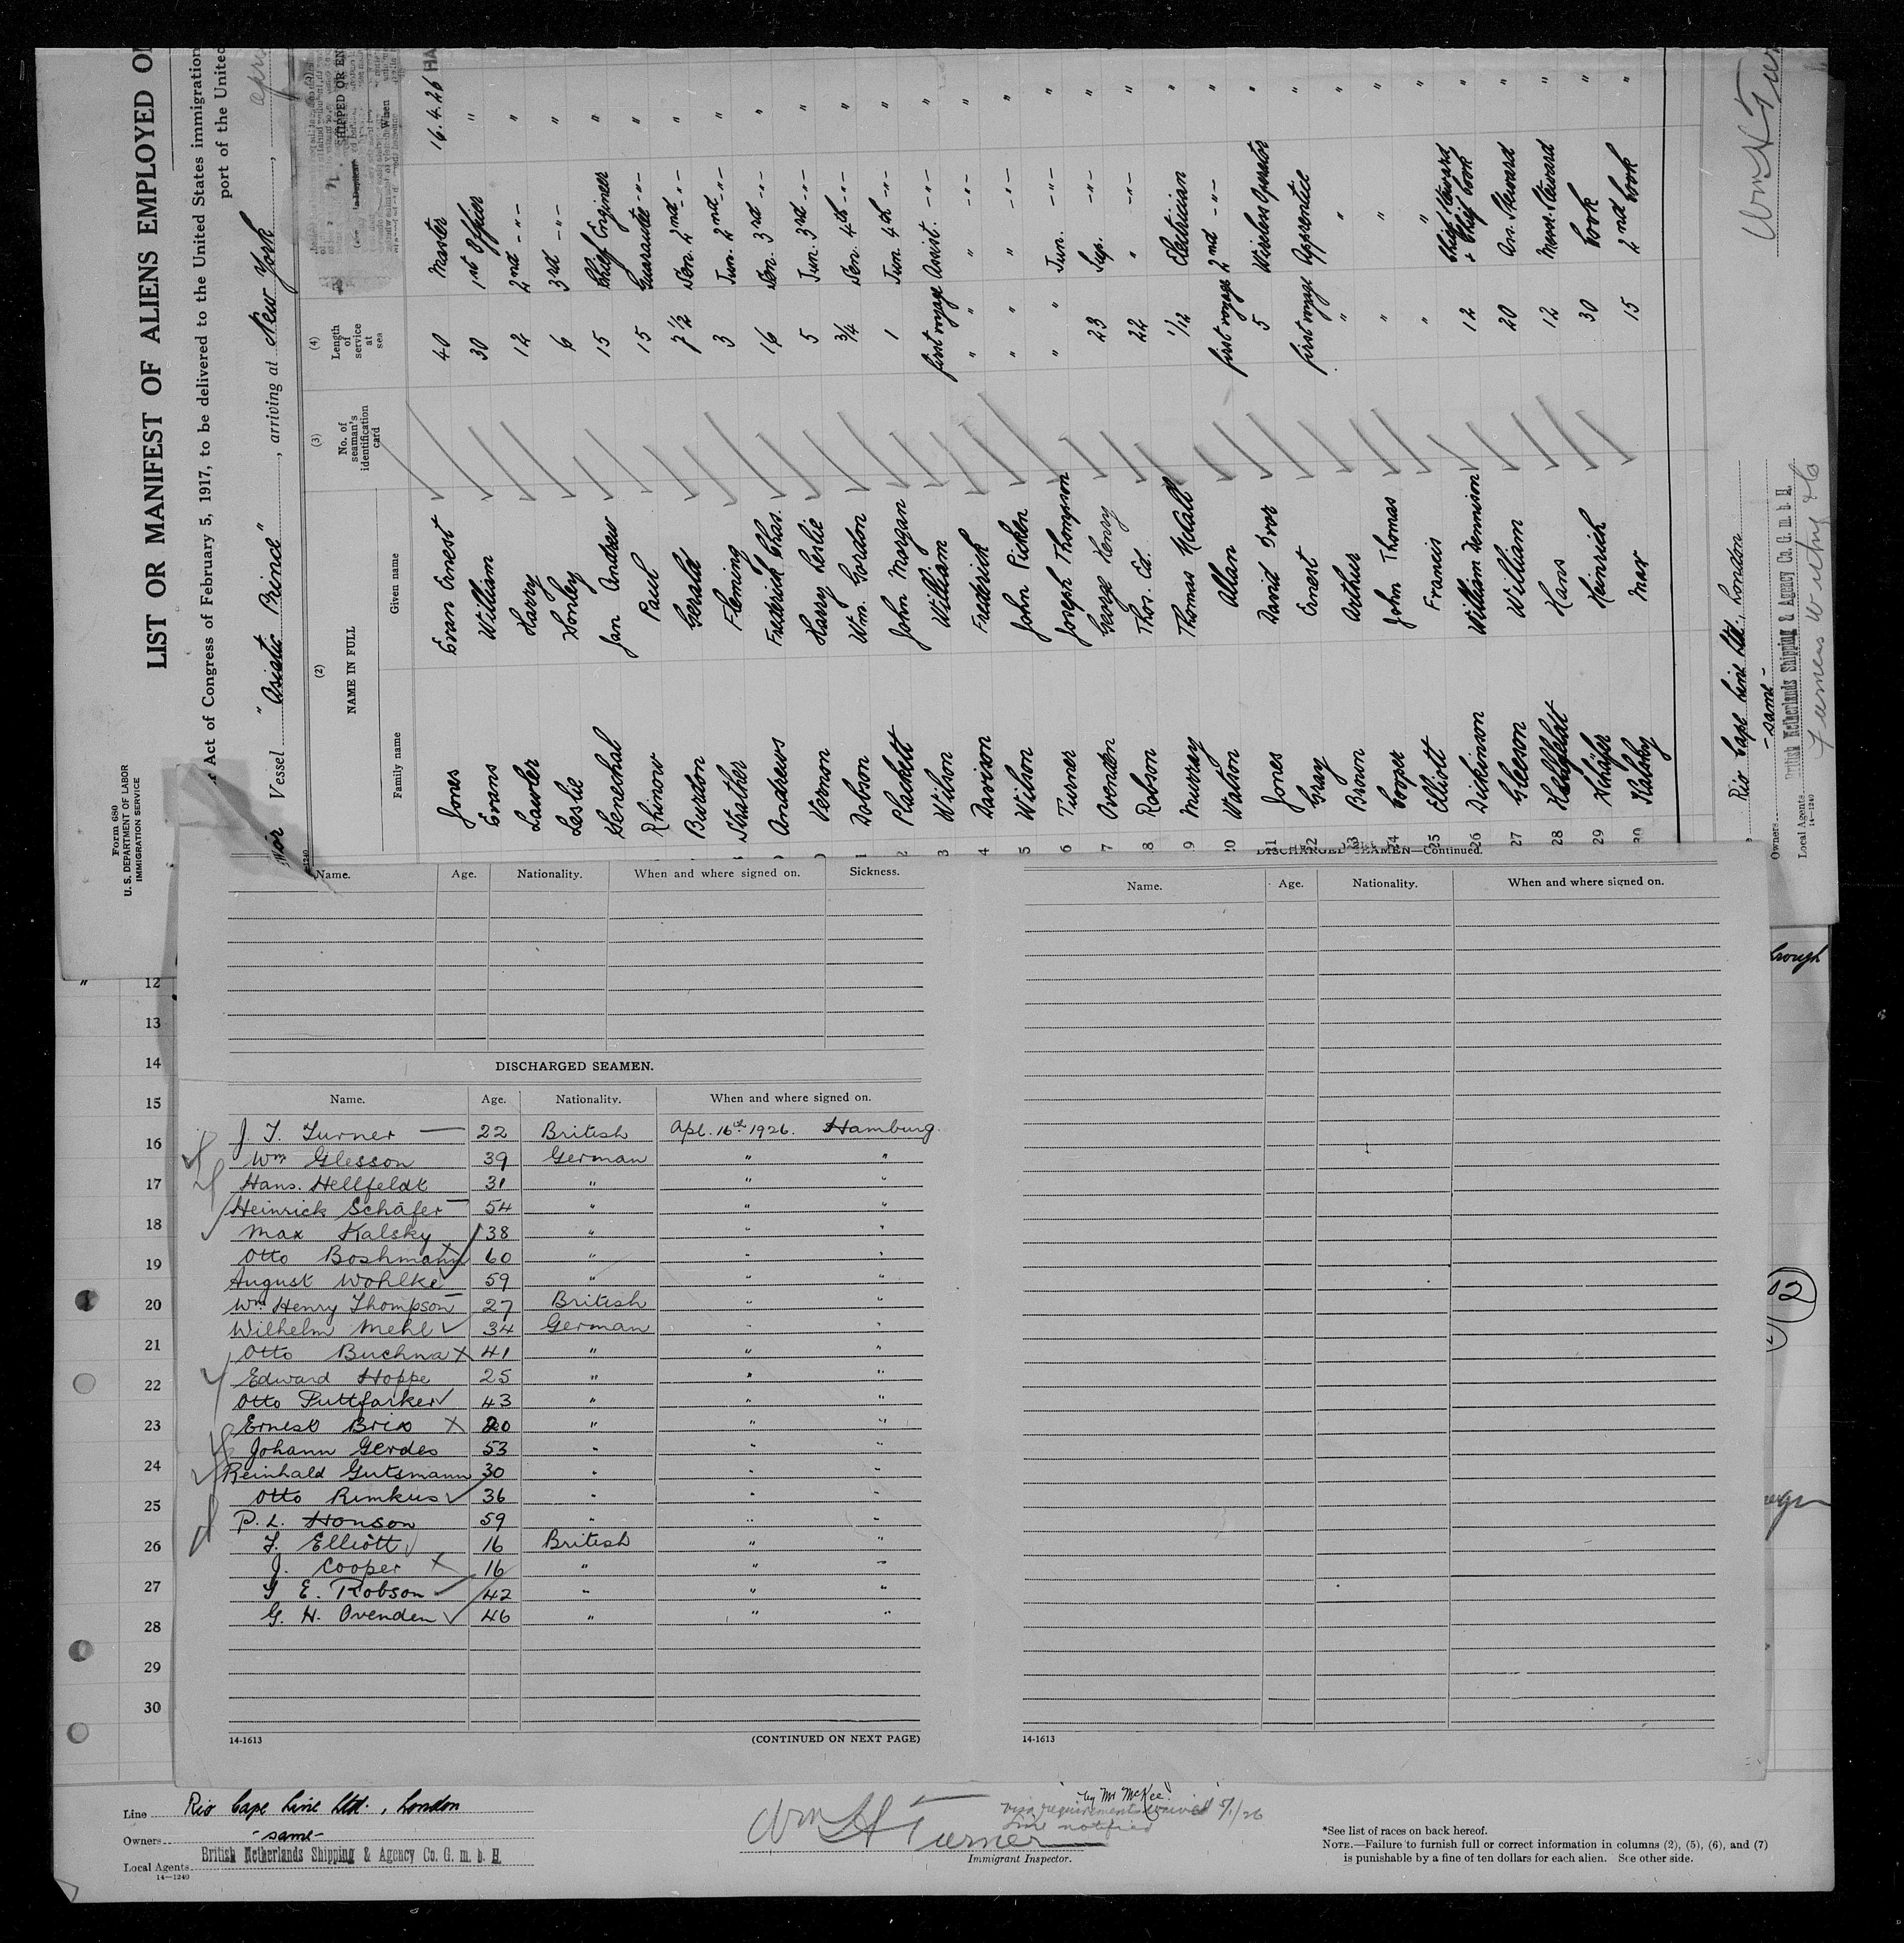 Form 680
U. S. DEPARTMENT OF LABOR
IMMIGRATION SERVICE
LIST OR MANIFEST OF ALIENS EMPLOYED O
Act of Congress of February 5, 1917, to be delivered to the United States immigration
port of the United
Vessel "Asiatic Prince", arriving at New York,
(2) (3) (4)
NAME IN FULL No. of seaman's identification card Length of service at sea SHIPPED OR EN
Family name Given name When
Jones Evan Ernest 40 Master 16.4.26 HA
Evans William 30 1st Officer "
Lawler Harry 12 2nd -"- "
Leslie Honley 6 3rd -"- "
Senechal Jan Andrew 15 Chief Engineer "
Rhinow Paul 15 Guarantee -"- "
Burdon Gerald 7 1/2 Sen. 2nd -"- "
Strather Fleming 3 Jun. 2nd -"- "
Andrews Frederick Chas. 16 Sen. 3rd -"- "
Vernon Harry Leslie 5 Jun. 3rd -"- "
Dobson Wm. Gordon 3/4 Sen. 4th -"- "
Plackett John Morgan 1 Jun. 4th -"- "
3 Wilson William first voyage Assist. -"- "
4 Davison Frederick " " -"- "
5 Wilson John Picken " " -"- "
6 Turner Joseph Thompson " Jun. -"- "
7 Ovenden George Henry 23 Sup. -"- "
8 Robson Thos. Ed. 22 " -"- "
9 Murray Thomas McCall 1/12 Electrician "
20 Watson Allan first voyage 2nd -"- "
21 Jones David Ivor 5 Wireless Operator "
22 Gray Ernest first voyage Apprentice "
23 Brown Arthur " " "
24 Cooper John Thomas " " "
25 Elliott Francis " " "
26 Dickinson William Dennison 12 Chief Steward + Chief Cook "
27 Gleeson William 20 Ass. Steward "
28 Hellfeldt Hans 12 Mess. Steward "
29 Schäfer Heinrich 30 Cook "
30 Kalsky Max 15 2nd Cook "
Rio Cape Line Ltd., London
Owners - same -
Local Agents British Netherlands Shipping & Agency Co. G. m. b. H.
14—1240
Furness Withy & Co
Wm H Tur
DISCHARGED SEAMEN—Continued.
Name. Age. Nationality. When and where signed on. Sickness.
Name. Age. Nationality. When and where signed on.
DISCHARGED SEAMEN.
Name. Age. Nationality. When and where signed on.
J. T. Turner 22 British Apl. 16th 1926. Hamburg.
Wm Glesson 39 German " "
Hans. Hellfeldt 31 " " "
Heinrick Schäfer 54 " " "
Max Kalsky 38 " " "
Otto Boshmann 60 " " "
August Wohlke 59 " " "
Wm Henry Thompson 27 British " "
Wilhelm Mehl 34 German " "
Otto Buchna 41 " " "
Edward Hoppe 25 " " "
Otto Puttfarker 43 " " "
Ernest Brix 20 " " "
Johann Gerdes 53 " " "
Reinhald Gutsmann 30 " " "
Otto Rimkus 36 " " "
P. L. Hanson 59 " " "
F. Elliott 16 British " "
J. Cooper 16 " " "
T E. Robson 42 " " "
G. H. Ovenden 46 " " "
14-1613 (CONTINUED ON NEXT PAGE)
14-1613
12
13
14
15
16
17
18
19
20
21
22
23
24
25
26
27
28
29
30
Line Rio Cape Line Ltd., London
Owners - same -
Local Agents British Netherlands Shipping & Agency Co. G. m. b. H.
14—1240
Wm H Turner
Immigrant Inspector.
by Mr McKee
visa requirements waived 5/1/26
Line notified
*See list of races on back hereof.
NOTE.—Failure to furnish full or correct information in columns (2), (5), (6), and (7)
is punishable by a fine of ten dollars for each alien. See other side.